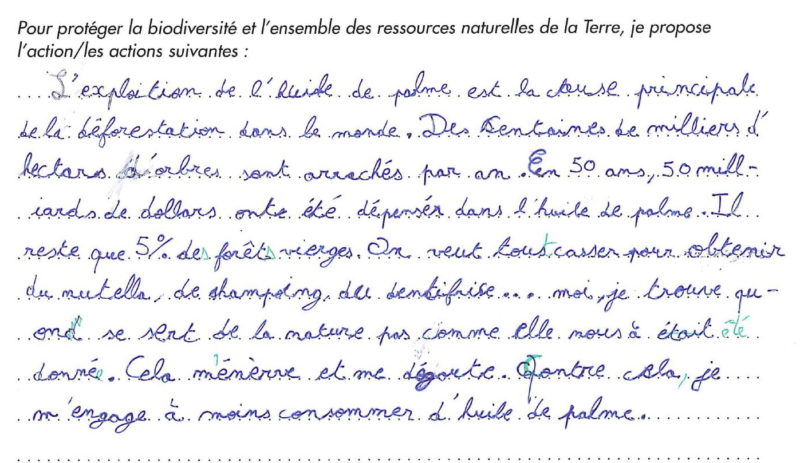 Pour protéger la biodiversité et l'ensemble des ressources naturelles de la Terre, je propose
l'action/les actions suivantes :
L'exploition de l'huide de palme est la couse principale
de la déforestation dans le monde. Des Centaines de milliers d'
hectares d'arbres sont arrachés par an. En 50 ans, 50 mill-
iards de dollars onte été dépensés dans l'huile de palme. Il
reste que 5% des forêts vierges. On veut tout casser pour obtenir
du nutella, de shampoing, du dentifrise.... moi, je trouve qu-
ond se sert de la nature pas comme elle nous à était été
donnée. Cela m'énèrve et me dégoute. Contre cela, je
m'engage à moins consommer d'huile de palme.